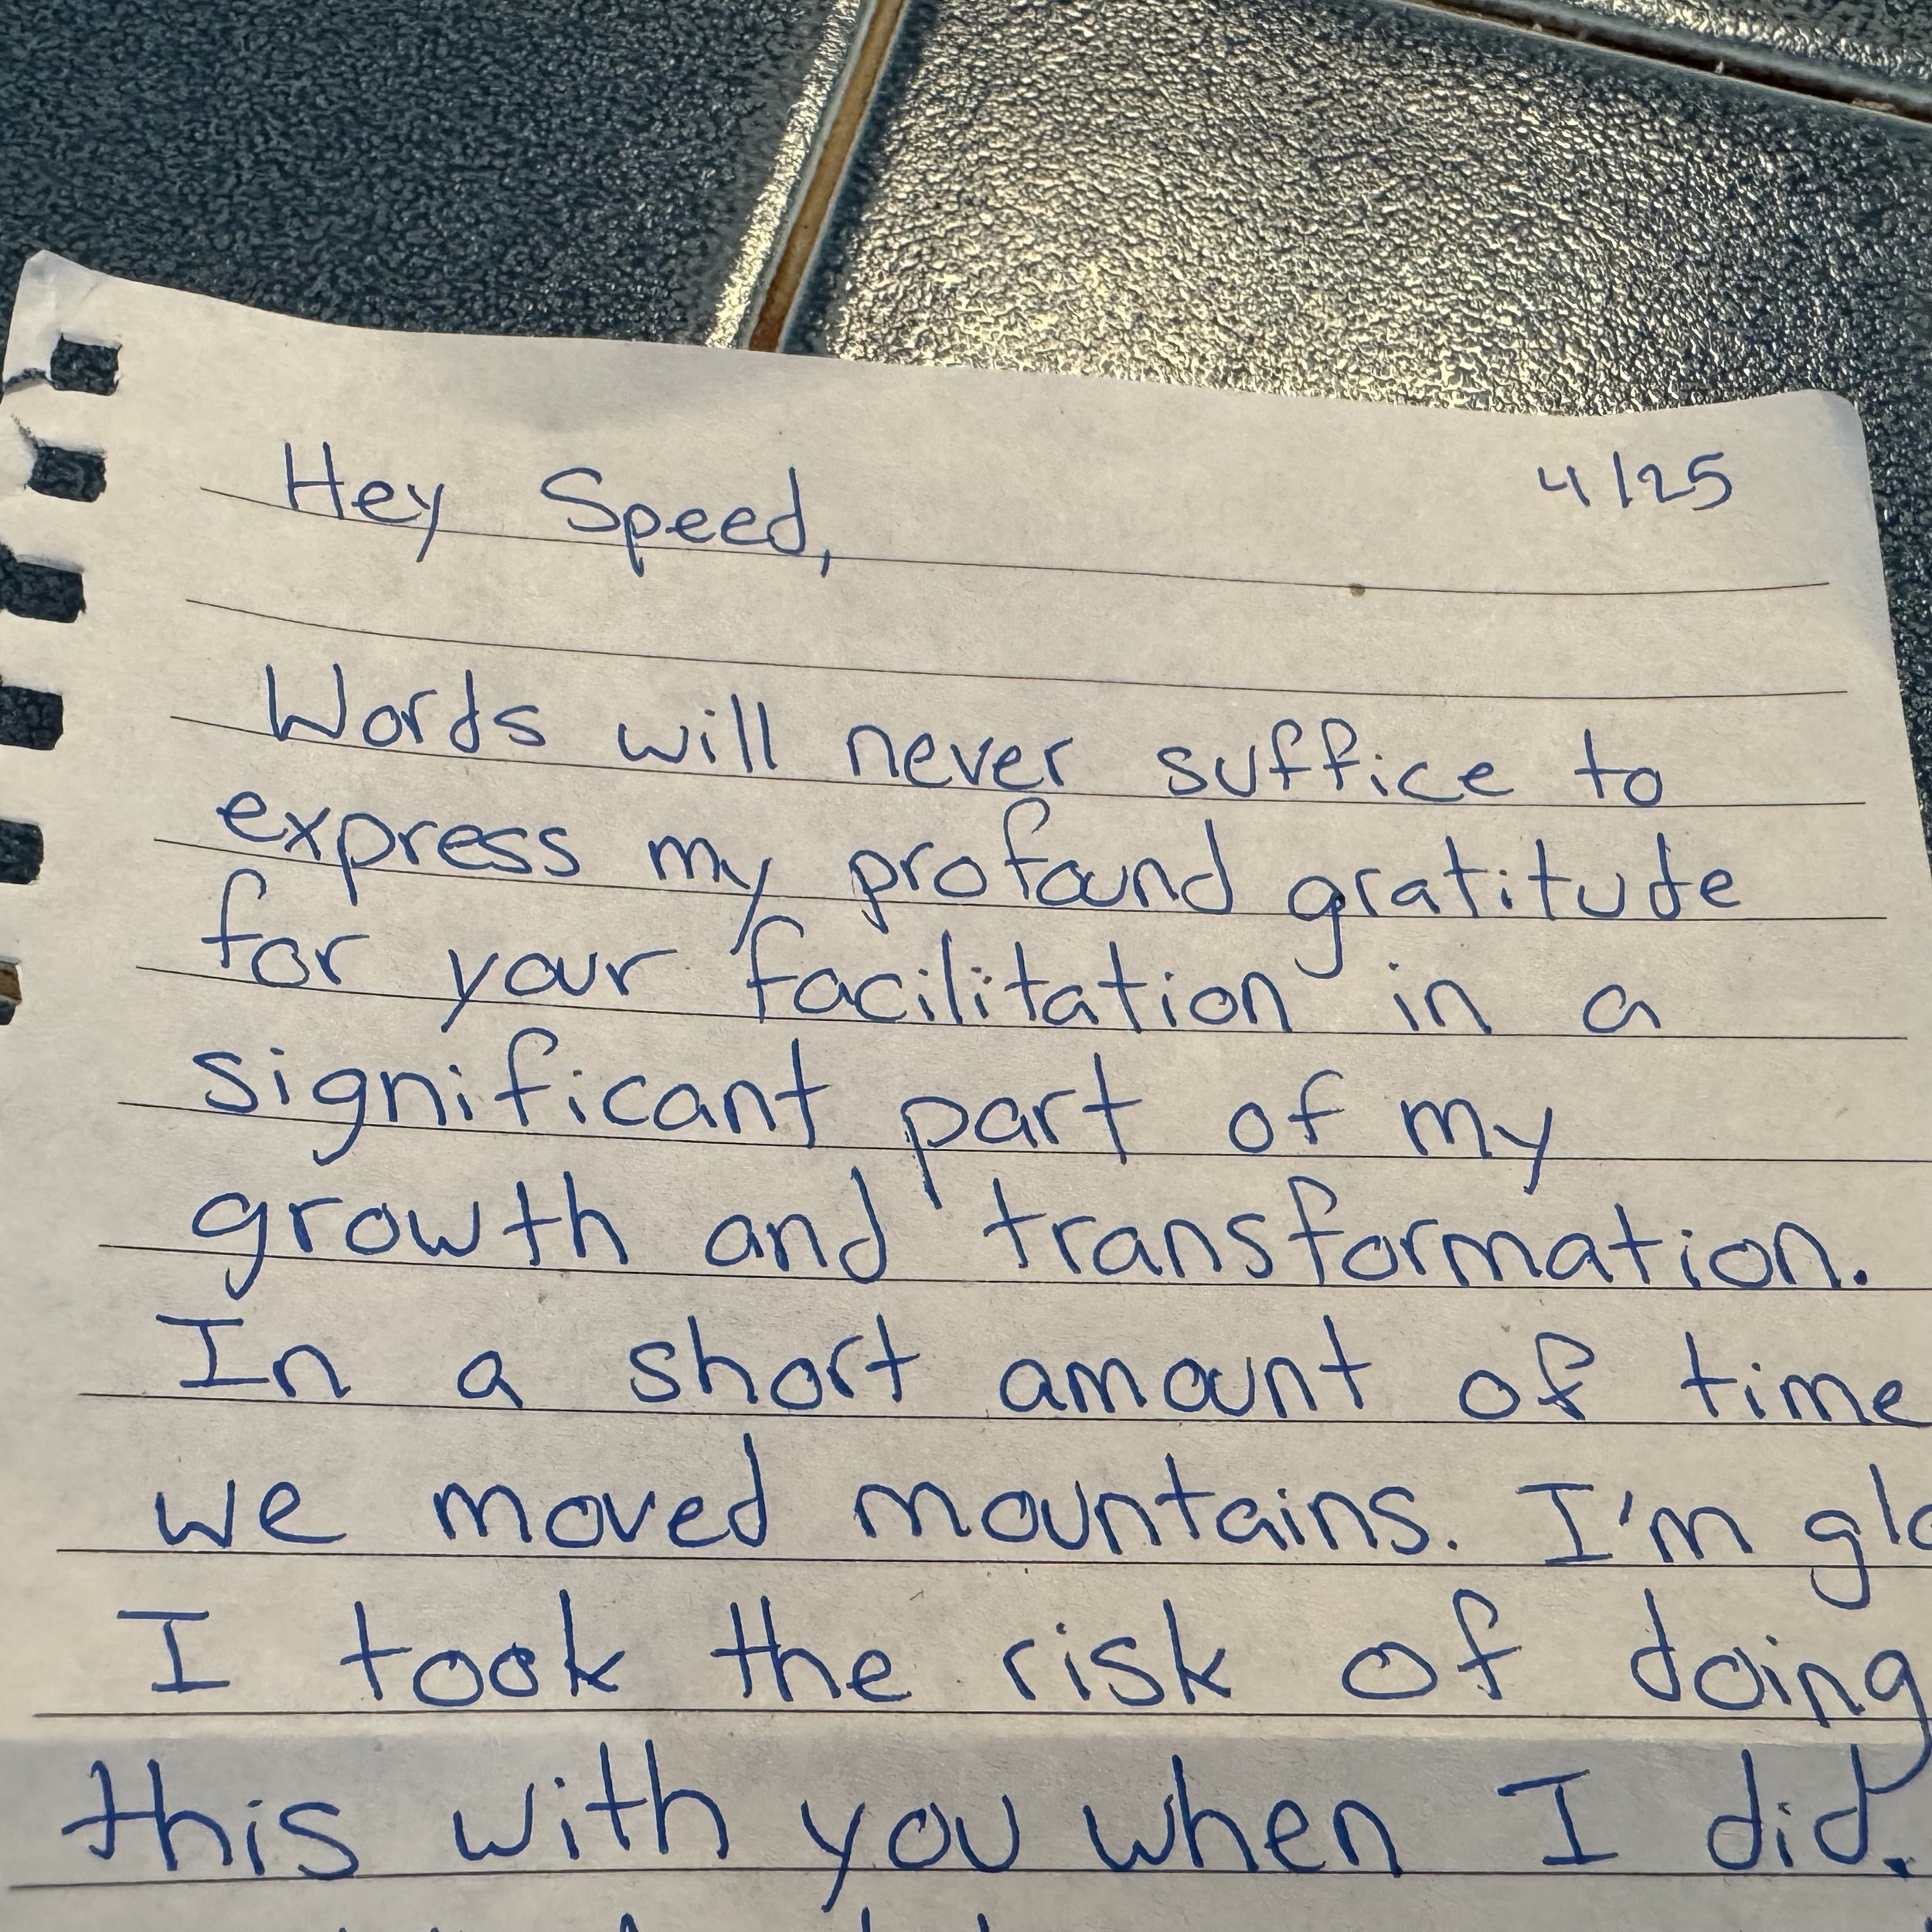 Hey Speed, 4/25
Words will never suffice to
express my profound gratitude
for your facilitation in a
significant part of my
growth and transformation.
In a short amount of time
we moved mountains. I'm
I took the risk of doing
this with you when I did.